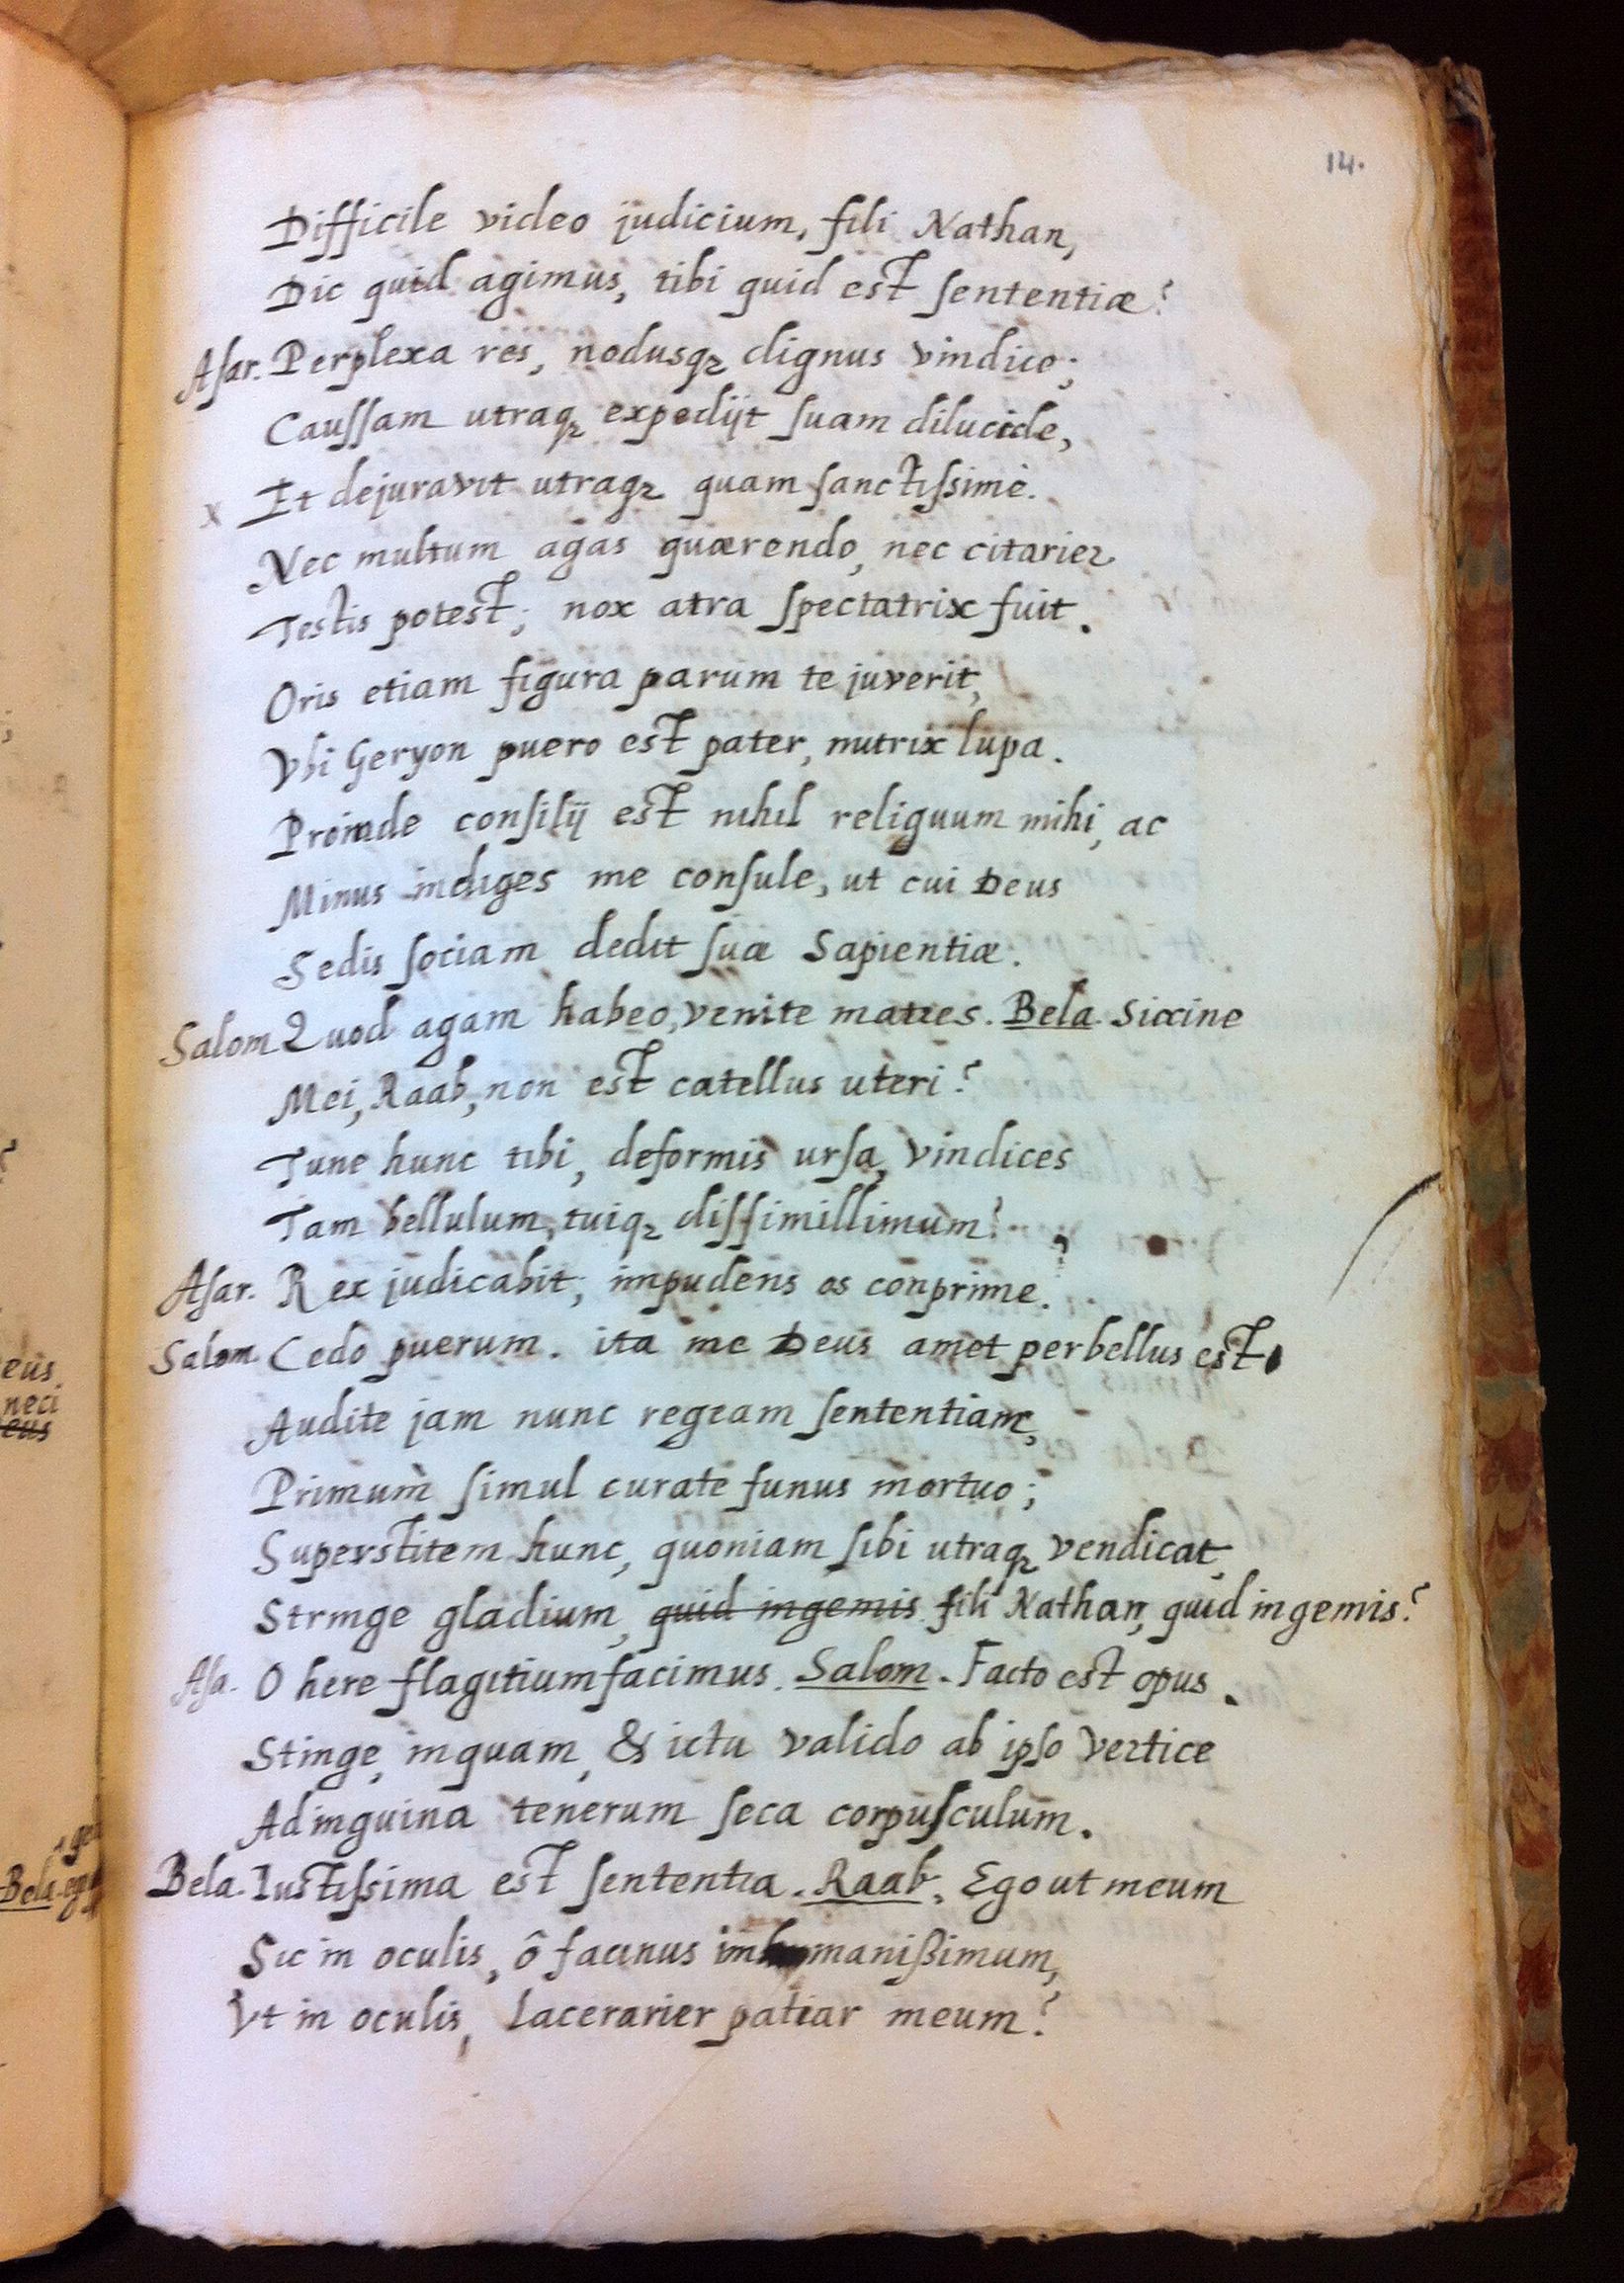 14.
Difficile video judicium, fili Nathan,
Dic quid agimus, tibi quid est sententiæ?
Asar. Perplexa res, nodusqꝫ dignus vindice;
Caussam utraqꝫ expedijt suam dilucide,
x Et dejuravit utraqꝫ quam sanctissimè.
Nec multum agas quærendo, nec citarier
Testis potest; nox atra spectatrix fuit.
Oris etiam figura parum te juverit,
Vbi Geryon puero est pater, nutrix lupa.
Proinde consilij est nihil reliquum mihi, ac
Minus indiges me consule, ut cui Deus
Sedis sociam dedit suæ Sapientiæ.
Salom Quod agam habeo, venite matres. Bela. Siccine
Mei, Raab, non est catellus uteri?
Tune hunc tibi, deformis ursa, vindices
Tam bellulum, tuiqꝫ dissimillimum?
Asar. Rex judicabit; impudens os conprime.
Salom. Cedo puerum. ita me Deus amet perbellus est.
Audite jam nunc regeam sententiam,
Primum simul curate funus mortuo;
Superstitem hunc, quoniam sibi utraqꝫ vendicat,
Stringe gladium, quid ingemis fili Nathan, quid ingemis?
Asa. O here flagitium facimus. Salom. Facto est opus.
Stinge, inquam, & ictu valido ab ipso vertice
Ad inguina tenerum seca corpusculum.
Bela. Iustissima est sententia. Raab. Ego ut meum
Sic in oculis, ô facinus inhumanißimum,
Vt in oculis, lacerarier patiar meum?
eus
neci
eus
Bela. eg